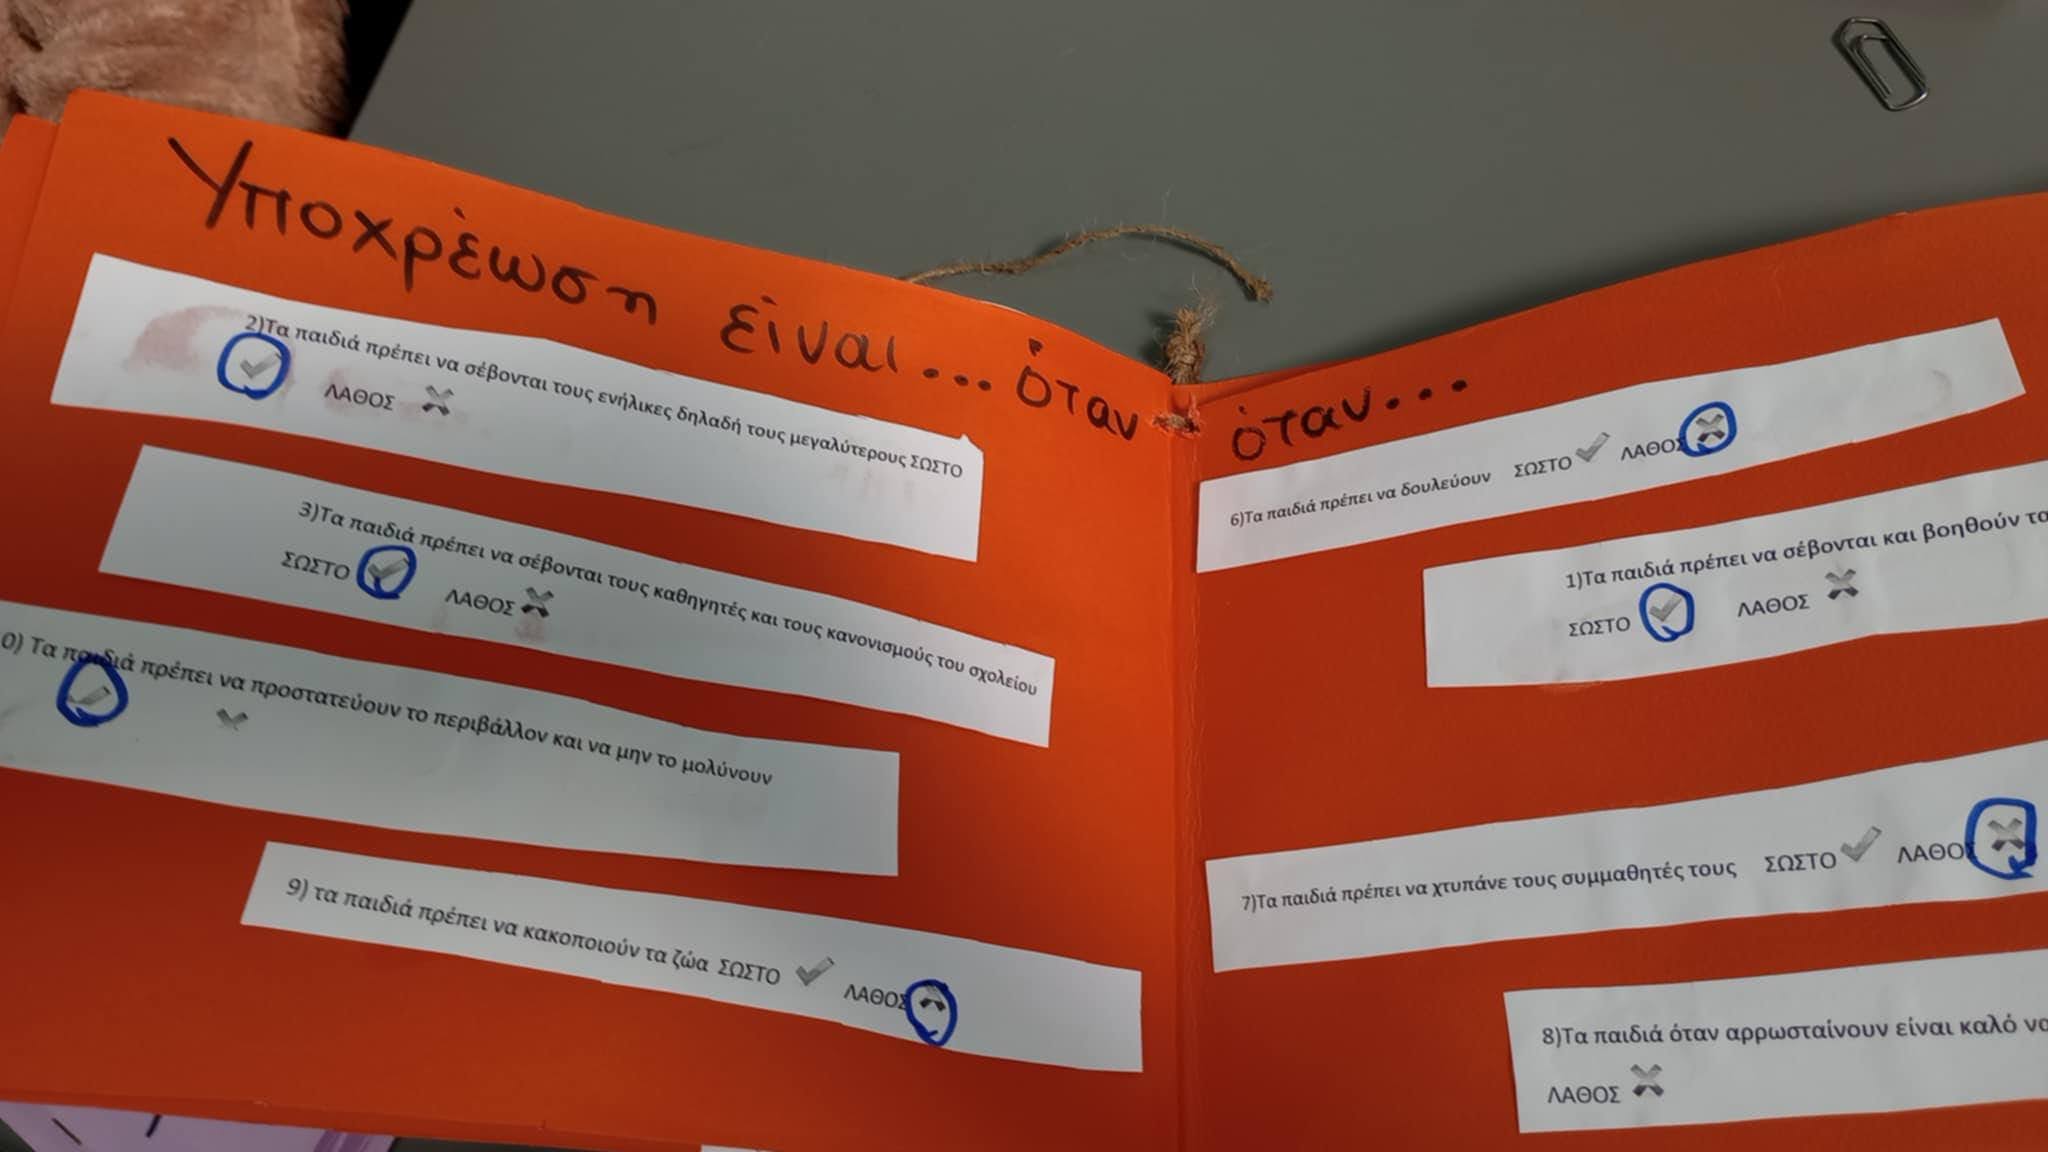 Υποχρέωση είναι... όταν
2)Τα παιδιά πρέπει να σέβονται τους ενήλικες δηλαδή τους μεγαλύτερους ΣΩΣΤΟ
ΛΑΘΟΣ
3)Τα παιδιά πρέπει να σέβονται τους καθηγητές και τους κανονισμούς του σχολείου
ΣΩΣΤΟ ΛΑΘΟΣ
0) Τα παιδιά πρέπει να προστατεύουν το περιβάλλον και να μην το μολύνουν
9) τα παιδιά πρέπει να κακοποιούν τα ζώα ΣΩΣΤΟ ΛΑΘΟΣ
όταν...
6)Τα παιδιά πρέπει να δουλεύουν ΣΩΣΤΟ ΛΑΘΟΣ
1)Τα παιδιά πρέπει να σέβονται και βοηθούν το
ΣΩΣΤΟ ΛΑΘΟΣ
7)Τα παιδιά πρέπει να χτυπάνε τους συμμαθητές τους ΣΩΣΤΟ ΛΑΘΟΣ
8)Τα παιδιά όταν αρρωσταίνουν είναι καλό να
ΛΑΘΟΣ